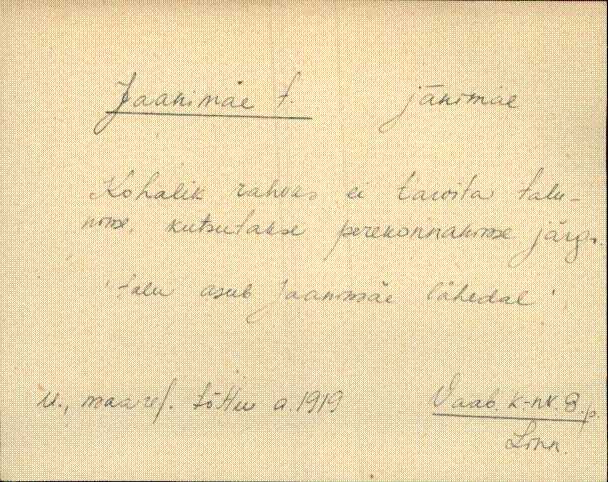 Jaanimäe t. jānimäe
Kohalik rahvas ei tarvita talu-
nime, kutsutakse perekonnanime järgi.
'talu asub Jaanimäe lähedal'
u., maaref. tõttu a. 1919 Vaab. k-nk. 8.p.
Linn.